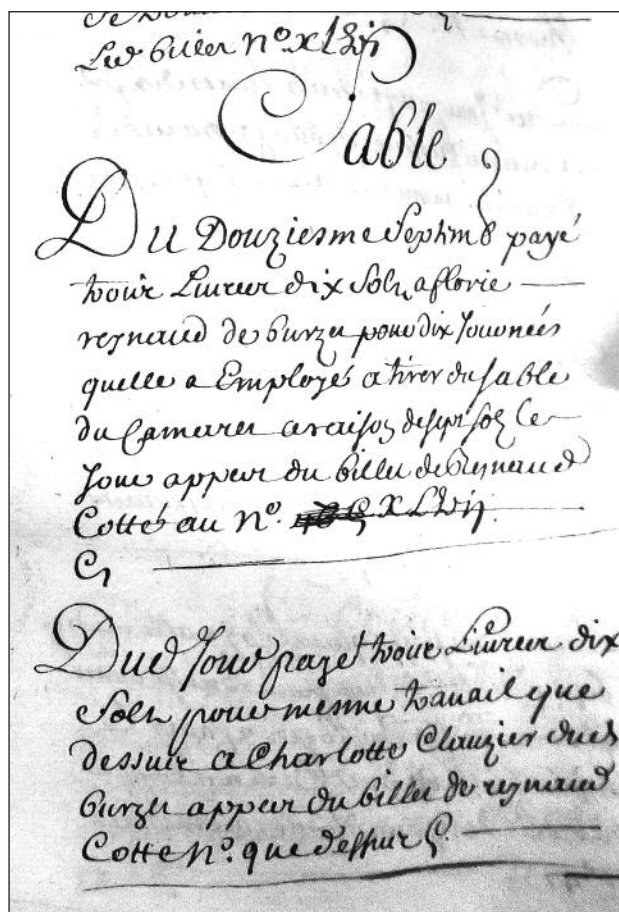 Led billet n.° XLVij
Sable
Du Douziesme Septm 8 payé
trois Livres dix Solz a florie
reynaud de burzet pour dix Journées
quelle a Employé a tirer du sable
du Camarer a raison de sept solz le
Jour appert du billet de Reynaud
Cotté au N.° XLVij.
Dud Jour payé trois Livres dix
Solz pour mesme travail que
dessus a Charlotte Clauzier dud
burzet appert du billet de reynaud
Cotté N.° que dessus